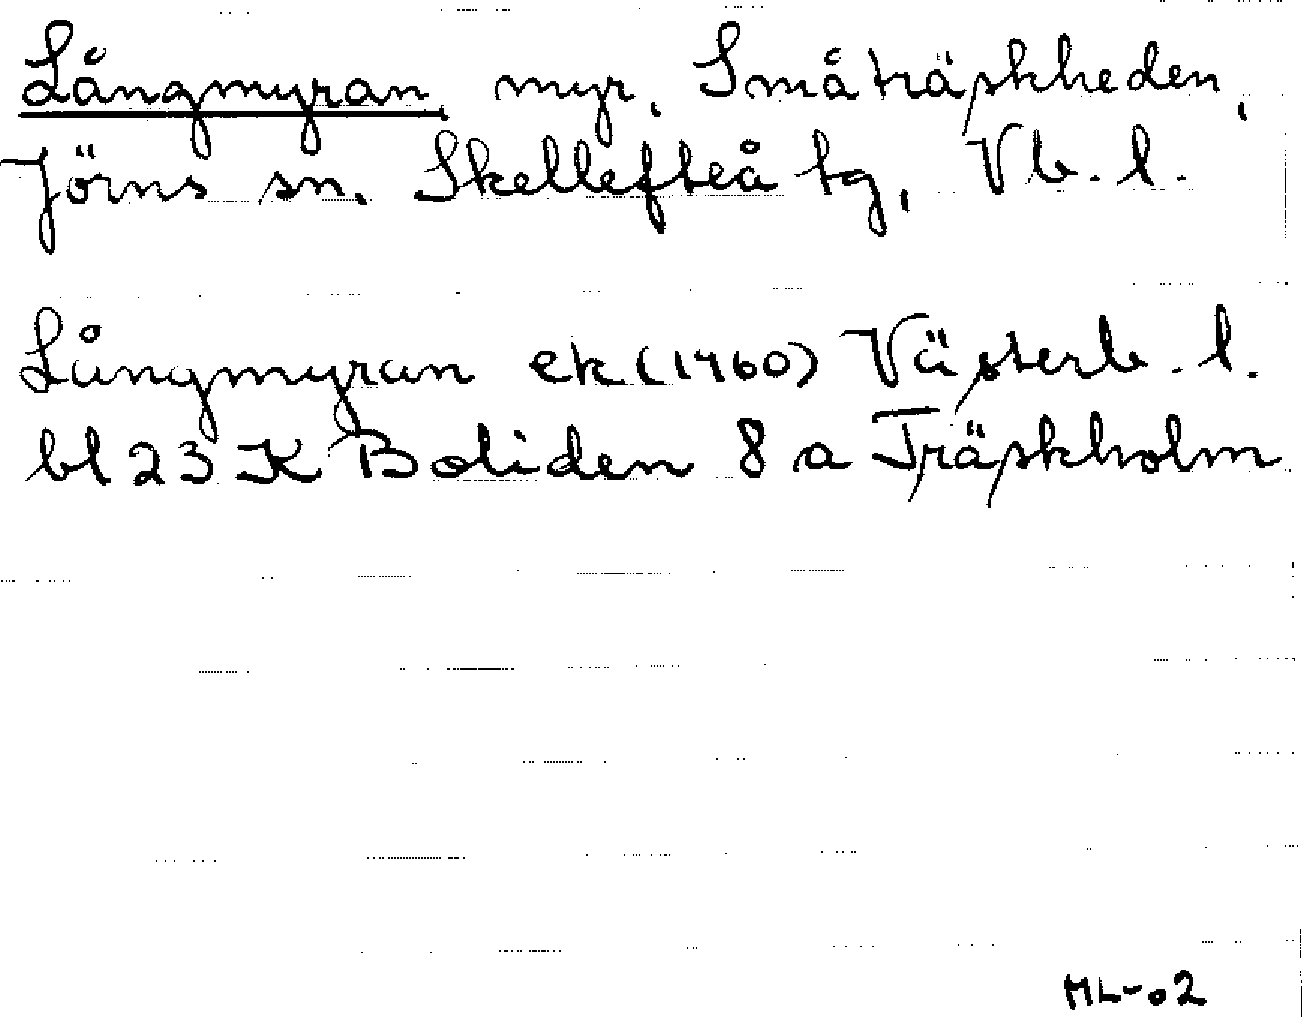 Långmyran, myr, Småträskheden,
Jörns sn. Skellefteå tg, Vb. l.
Långmyran ek (1960) Västerb. l.
bl 23 K Boliden 8 a Träskholm
ML-02